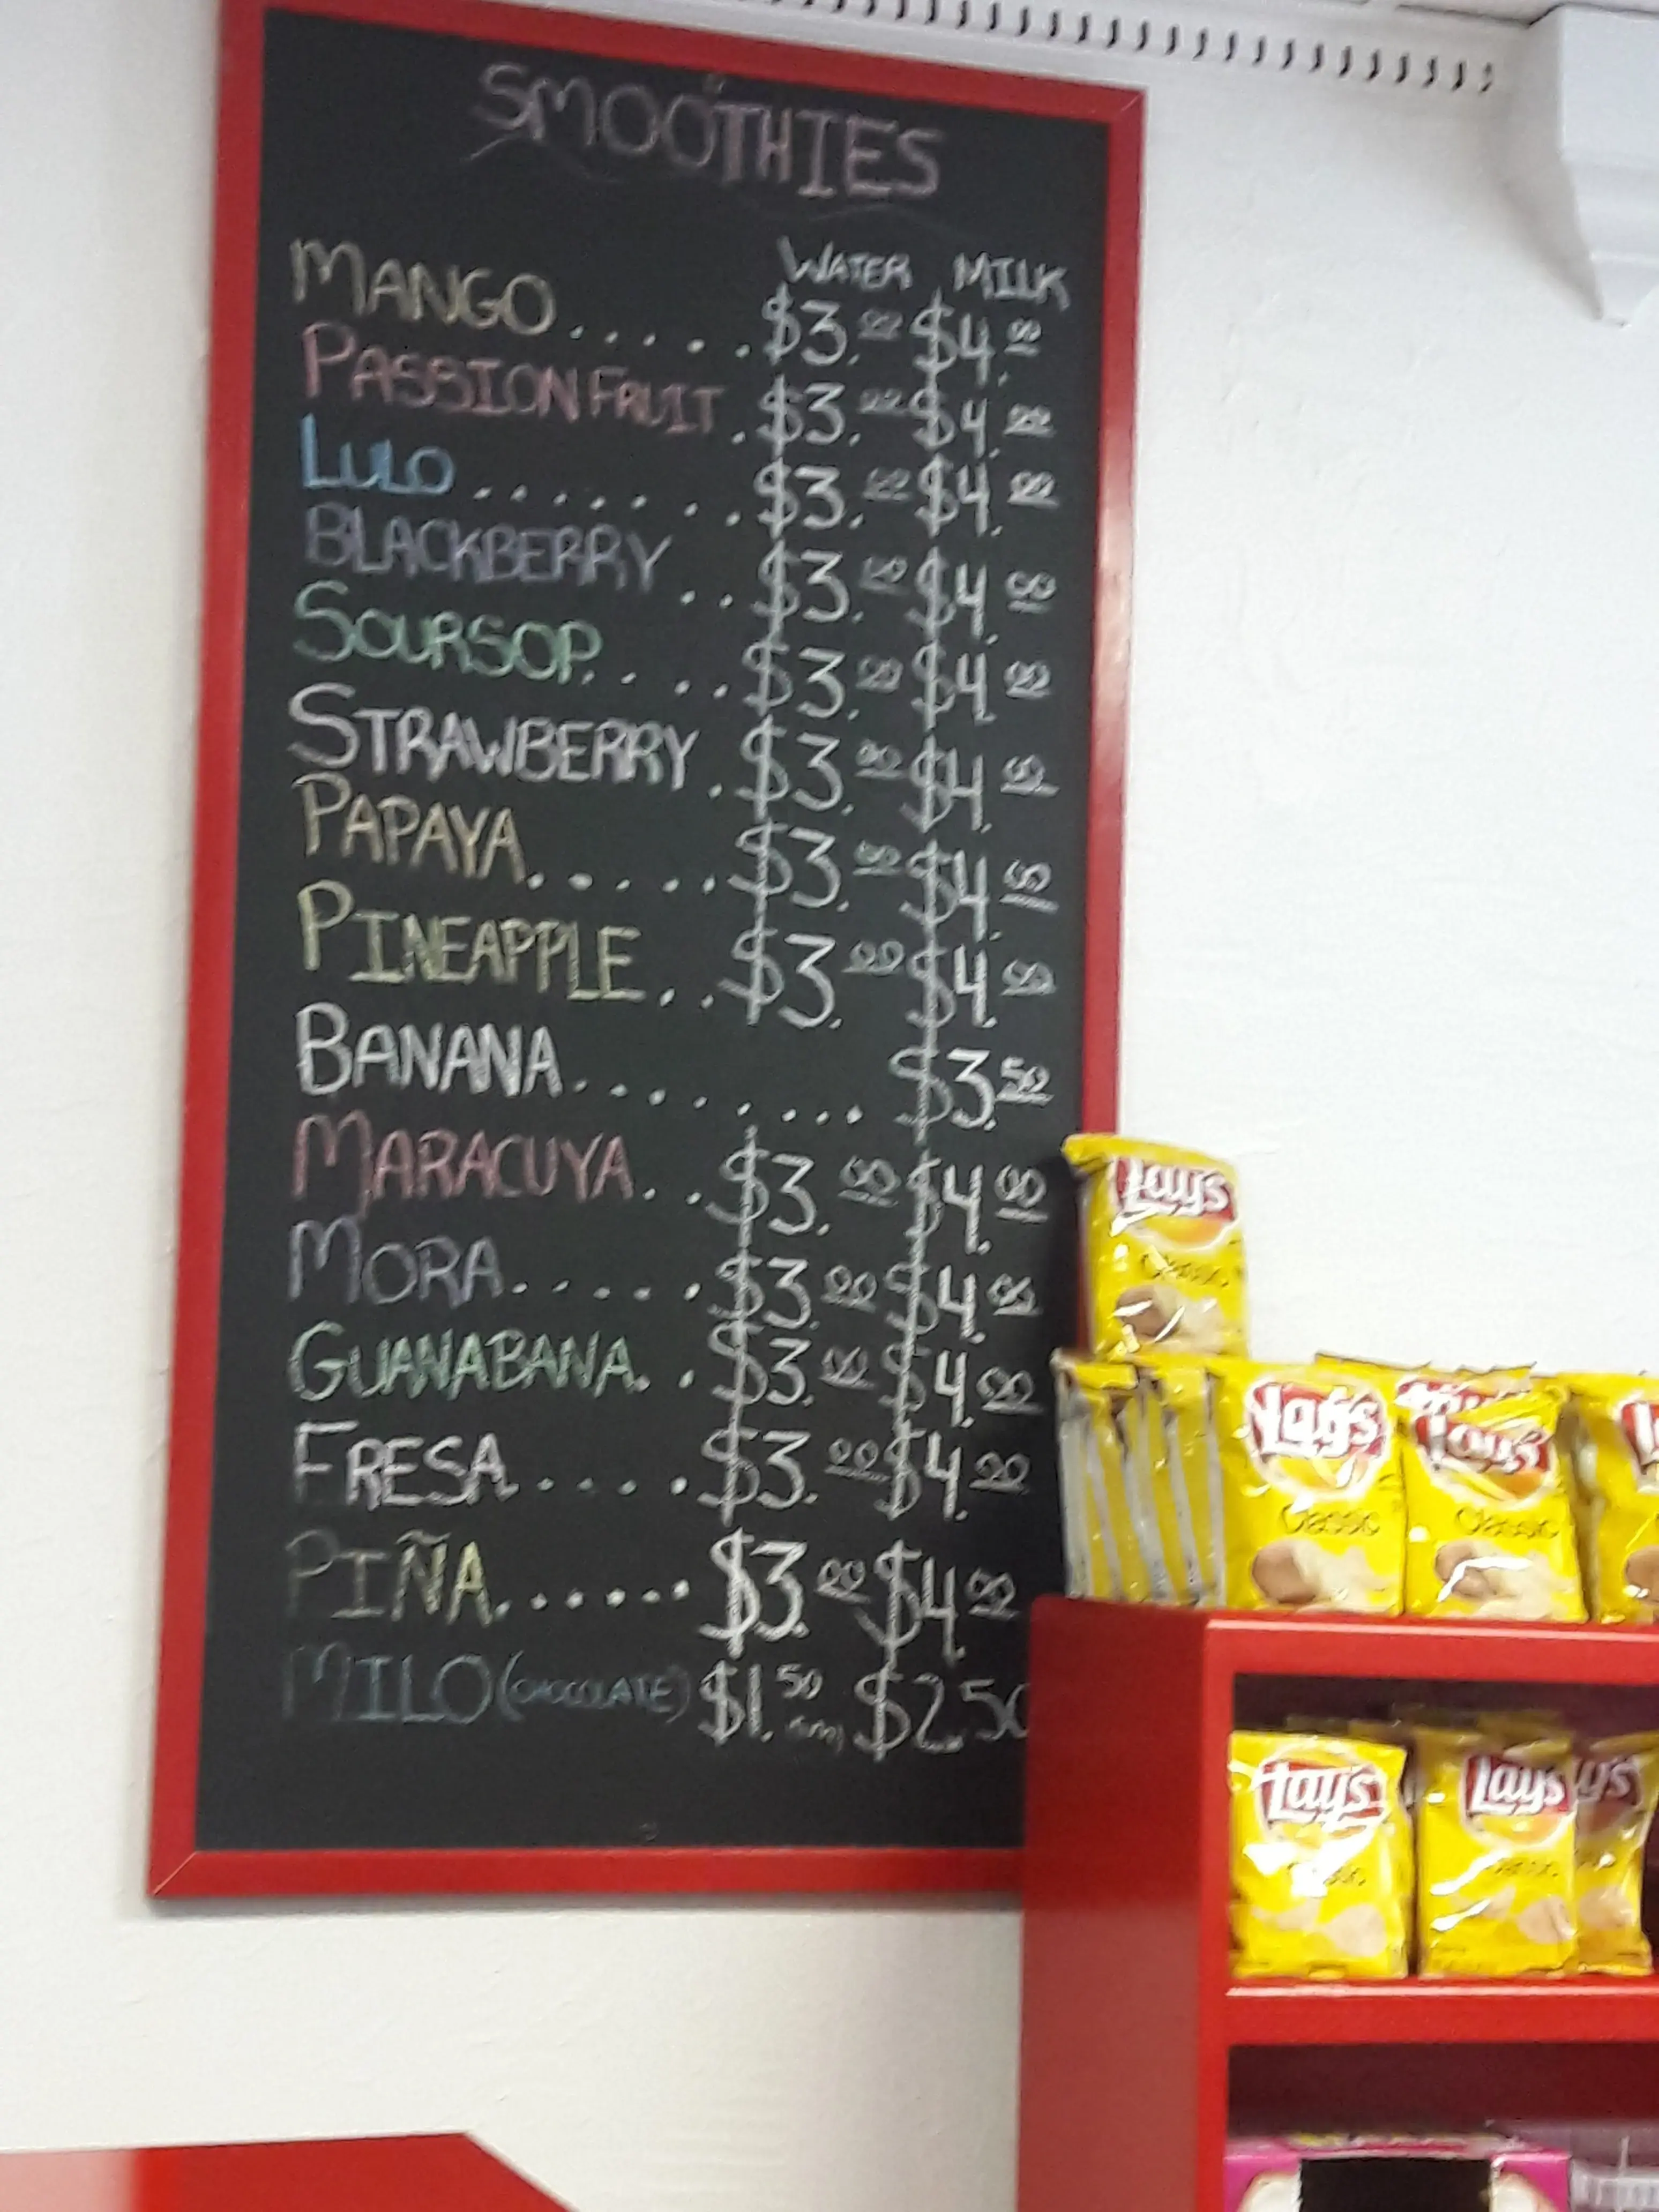 SMOOTHIES
WATER MILK
MANGO.....$3.00 $4.00
PASSION FRUIT.$3.00 $4.00
LULO.......$3.00 $4.00
BLACKBERRY..$3.00 $4.00
SOURSOP....$3.00 $4.00
STRAWBERRY.$3.00 $4.00
PAPAYA.....$3.00 $4.00
PINEAPPLE..$3.00 $4.00
BANANA........$3.50
MARACUYA..$3.00 $4.00
MORA.....$3.00 $4.00
GUANABANA..$3.00 $4.00
FRESA....$3.00 $4.00
PIÑA......$3.00 $4.00
MILO (CHOCOLATE) $1.50 $2.50
Lay's
Classic
Lay's
Classic
Lay's
Classic
Lay's
Classic
Lay's
Classic